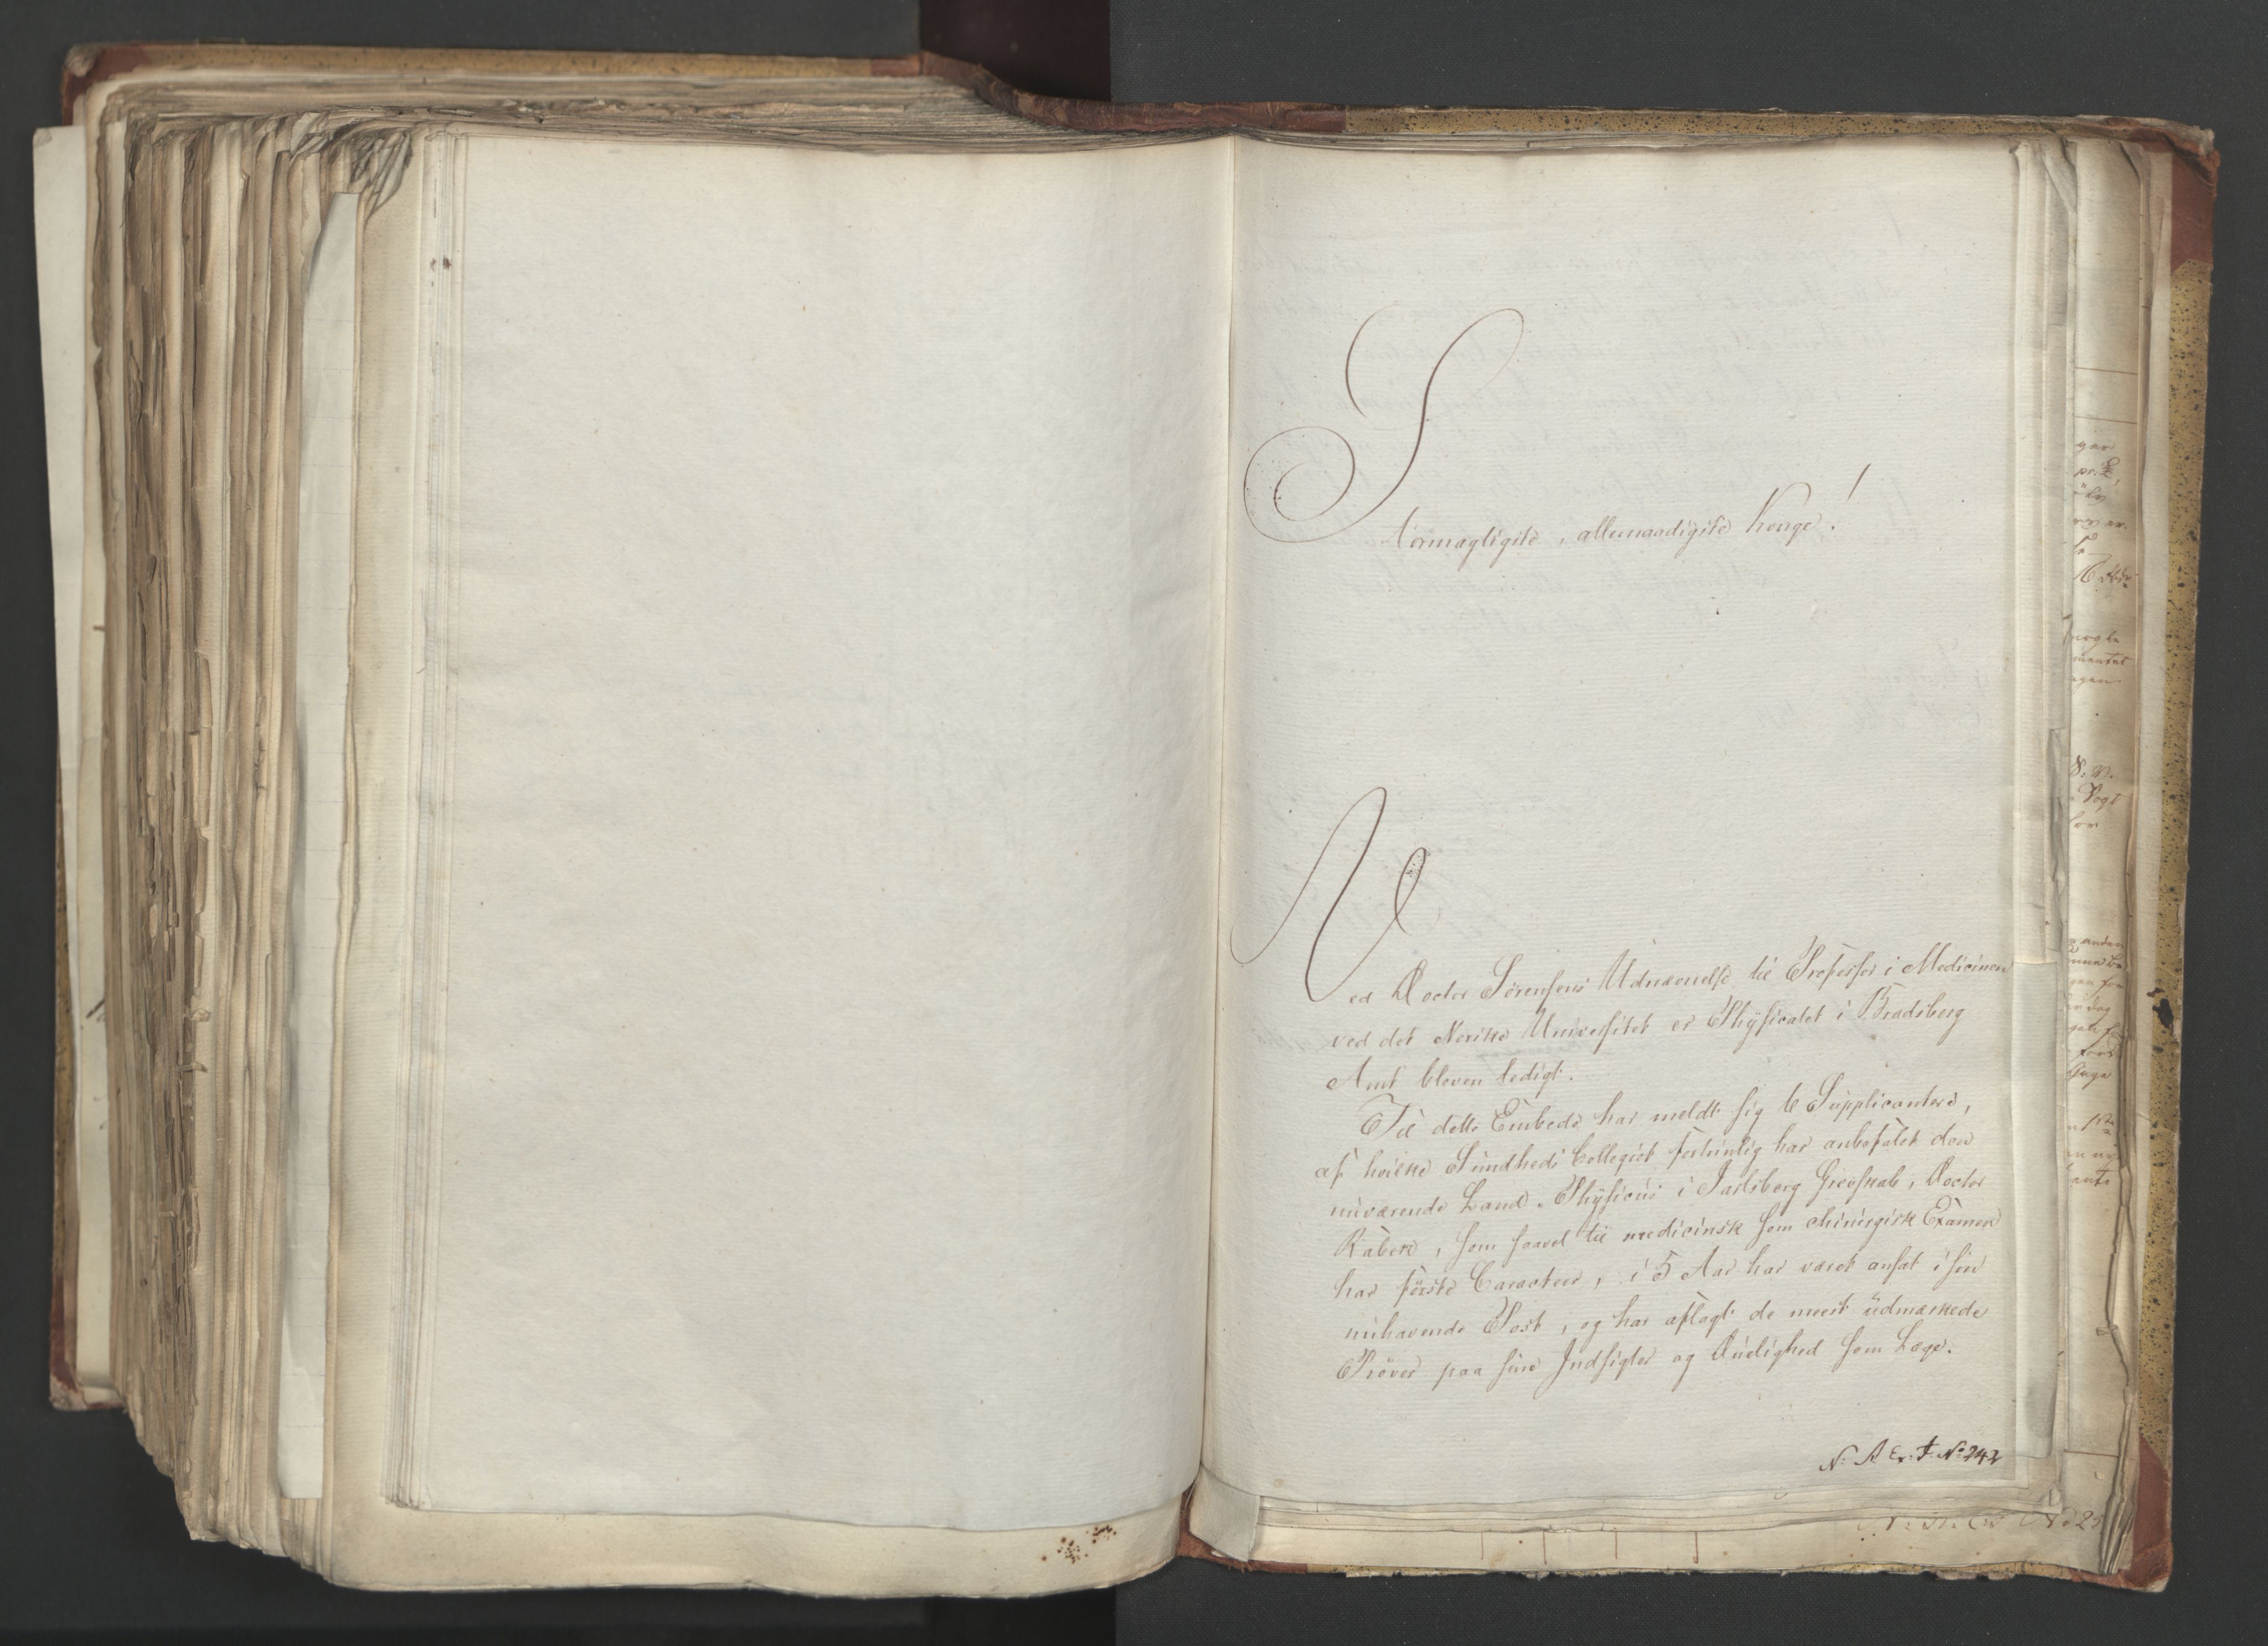 Stormægtigste, allernaadigste Konge!
Ved Doctor Sörensens Udnævnelse til Professor i Medicinen
ved det Norske Universitet er Physicatet i Bradsberg
Amt bleven ledigt.
Til dette Embede har meldt sig 6 Supplicantere,
af hvilke Sundheds Collegiet fortrinlig har anbefalet den
nuværende Land-Physicus i Jarlsberg Grevskab, Doctor
Raben, som saavel til medicinsk som chirurgisk Examen
har förste Caracteer, i 5 Aar har været ansat i sin
nuhavende Post, og har aflagt de meest udmærkede
Pröver paa sine Indsigter og Duelighed som Læge.
N: A Er: † No 242